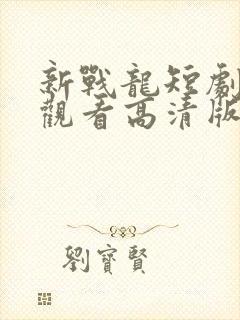 新戰龍短劇
觀看高清版
劉寶賢